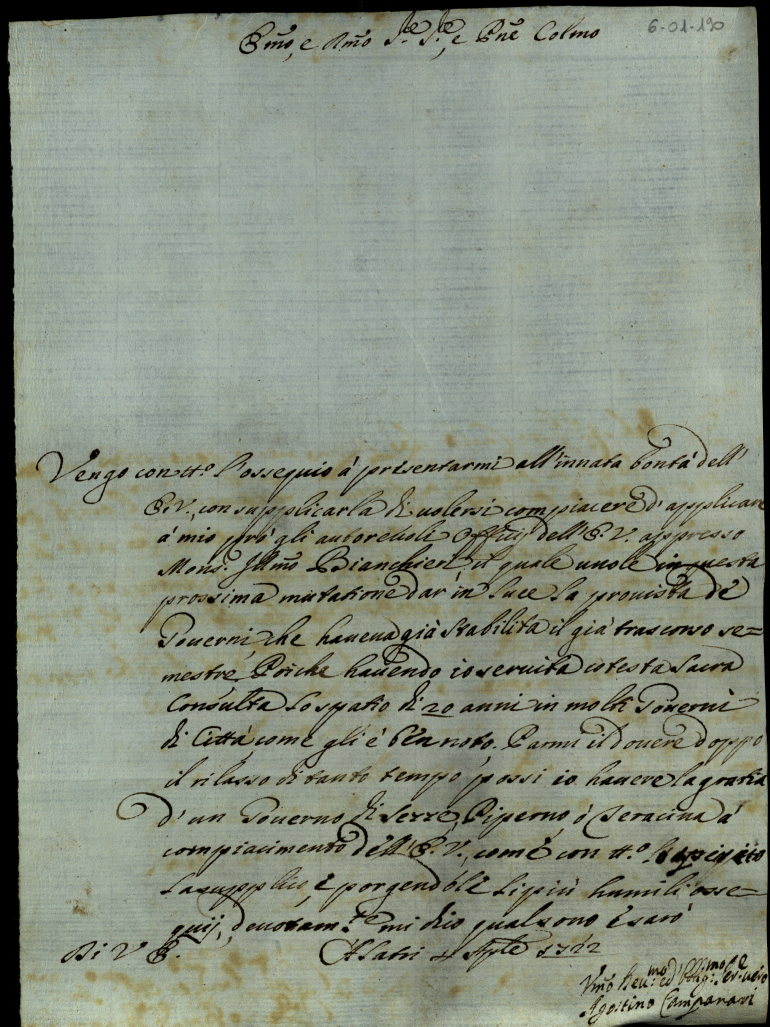 6-01-190
Emo, e Rmo Sre Sre, e Pne Colmo
Vengo con tto l'ossequio à presentarmi all'innata bontà dell'
E.V., con supplicarla di volersi compiacere d'applicare
à mio prò gli autorevoli Officij dell'E.V. appresso
Mons. Illmo Bianchieri, il quale vuole in questa
prossima mutatione dar' in luce la provista de'
Governi, che haveva già stabilita il già trascorso se=
mestre. Poiche havendo io servita cotesta Sacra
Consulta lo spatio di 20 anni in molti Governi
di Città, come gli è ben noto. Parmi il dovere doppo
il rilasso di tanto tempo, possi io havere la gratia
d'un Governo di Sezze, Piperno, ò Teracina à
compiacimento dell'E.V., com'è con tto
la supplico, e porgendole li più humili osse=
quij, devotamte mi dico qual sono e sarò
Di V E. Alatri 4 Aple 1722
Vmo Devmo ed Obligmo Serre vero
Agostino Campanari